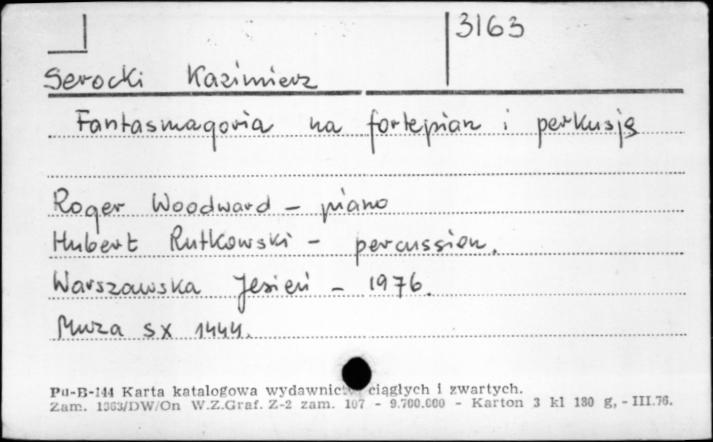 3163
Serocki Kazimierz
Fantasmagoria na fortepian i perkusję
Roger Woodward – piano
Hubert Rutkowski – percussion.
Warszawska Jesień – 1976.
Muza SX 1444.
Pu-B-144 Karta katalogowa wydawnictw ciągłych i zwartych.
Zam. 1363/DW/On W.Z.Graf. Z-2 zam. 107 - 9.700.000 - Karton 3 kl 180 g, - III.76.